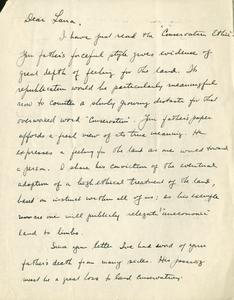 Dear Luna,
I have just read the "Conservation Ethic"
Your father's forceful style gives evidence of
great depth of feeling for the land. Its
republication would be particularly meaningful
now to counter a slowly growing distaste for that
overworked word "Conservation". Your father's paper
affords a fresh view of its true meaning. He
expresses a feeling for the land as one would toward
a person. I share his conviction of the eventual
adoption of a high ethical treatment of the land,
based on instinct within all of us; as his example
now no one will publicly relegate "uneconomic"
land to limbo.
Since your letter I've had word of your
father's death from many sides. His passing
must be a great loss to land conservation;